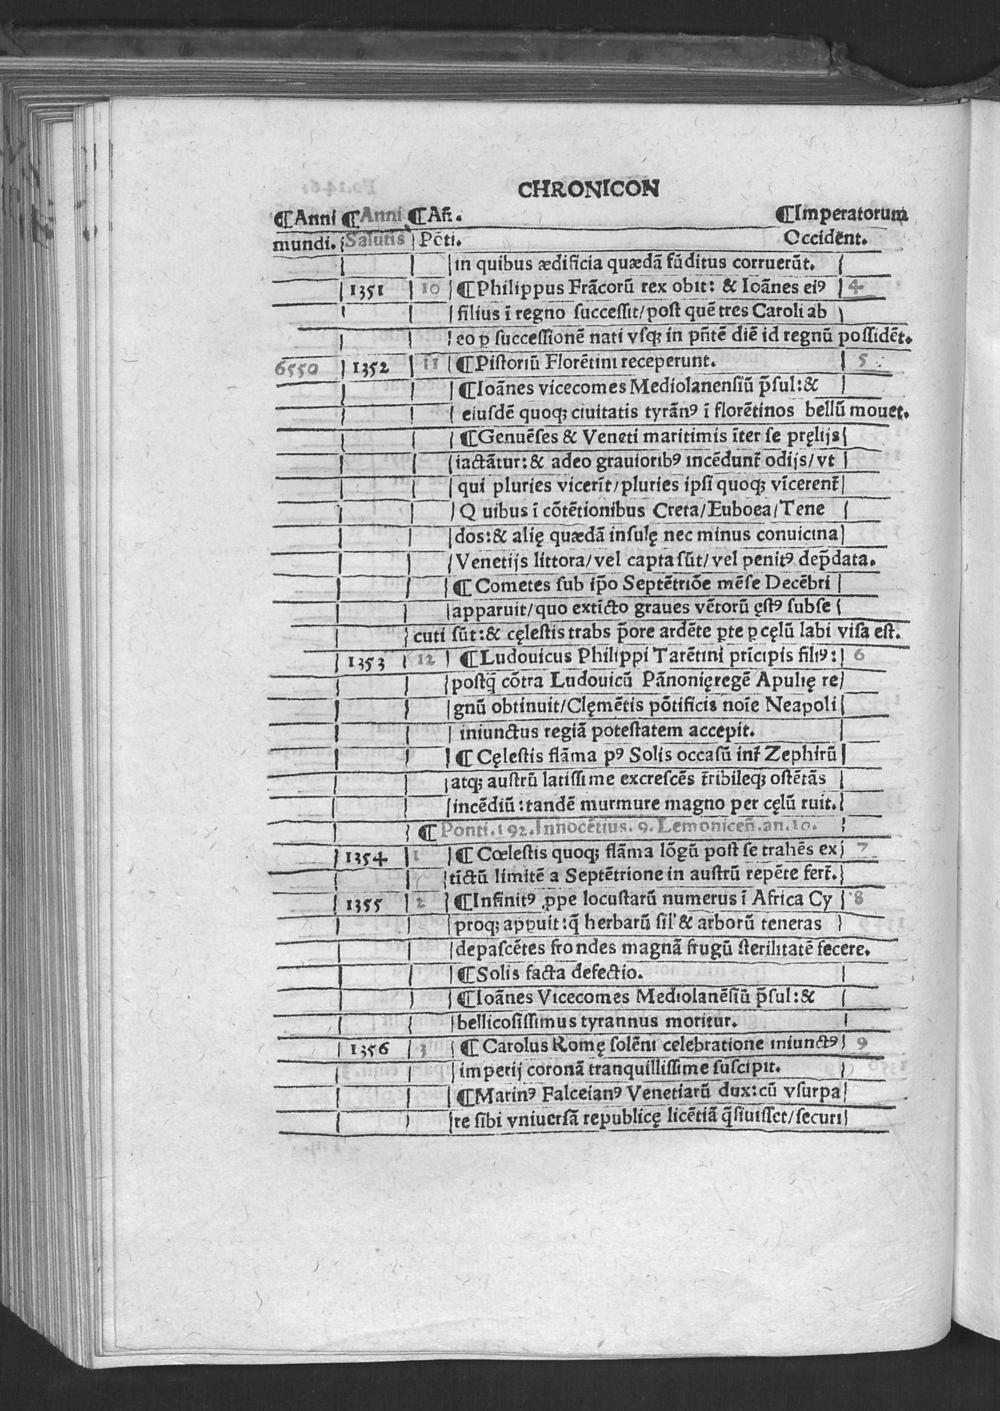 CHRONICON
¶Anni ¶Anni ¶Añ. ¶Imperatorum
mundi. Salutis Põti. Occident.
in quibus ædificia quædã fũditus corruerũt.
1351 10 ¶Philippus Frãcorũ rex obit: & Ioãnes eiꝰ 4
filius ĩ regno successit/post quẽ tres Caroli ab
eo ꝑ successionẽ nati vsqꝫ in pñtẽ diẽ id regnũ possidẽt.
6550 1352 11 ¶Pistoriũ Florẽtini receperunt. 5
¶Ioãnes vicecomes Mediolanensiũ p̃sul:&
eiusdẽ quoqꝫ ciuitatis tyrãnꝰ ĩ florẽtinos bellũ mouet.
¶Genuẽses & Veneti maritimis ĩter se pręlijs
iactãtur:& adeo grauioribꝰ incẽdunt̃ odijs/vt
qui pluries vicerĩt/pluries ipsi quoqꝫ vĩcerent̃
Q uibus ĩ cõtẽtionibus Creta/Euboea/Tene
dos:& alię quædã insulę nec minus conuicina
Venetijs littora/vel capta sũt/vel penitꝰ dep̃data.
¶Cometes sub ip̃o Septẽtriõe mẽse Decẽbri
apparuit/quo extĩcto graues vẽtorũ ęstꝰ subse
cuti sũt:& cęlestis trabs p̃ore ardẽte ꝑte ꝑ cęlũ labi visa est.
1353 12 ¶Ludouicus Philippi Tarẽtini prĩcipis filiꝰ: 6
postq̃ cõtra Ludouicũ Pãnonięregẽ Apulię re
gnũ obtinuit/Clęmẽtis põtificis noĩe Neapoli
iniunctus regiã potestatem accepit.
¶Cęlestis flãma pꝰ Solis occasũ int̃ Zephirũ
atqꝫ austrũ latissime excrescẽs t̃ribileqꝫ ostẽtãs
incẽdiũ:tandẽ murmure magno per cęlũ ruit.
¶Ponti.192.Innocẽtius.9.Lemoniceñ.an.10.
1354 1 ¶Cœlestis quoqꝫ flãma lõgũ post se trahẽs ex 7
tĩctũ limitẽ a Septẽtrione in austrũ repẽte fert̃.
1355 2 ¶Infinitꝰ ꝓpe locustarũ numerus ĩ Africa Cy 8
proqꝫ apꝑuit:q̃ herbarũ sil̃ & arborũ teneras
depascẽtes frondes magnã frugũ sterilitatẽ fecere.
¶Solis facta defectio.
¶Ioãnes Vicecomes Mediolanẽsiũ p̃sul:&
bellicosissimus tyrannus moritur.
1356 3 ¶Carolus Romę solẽni celebratione iniunctꝰ 9
imperij coronã tranquillissime suscipit.
¶Marinꝰ Falceianꝰ Venetiarũ dux:cũ vsurpa
re sibi vniuersã republicę licẽtiã q̃siuisset/securi